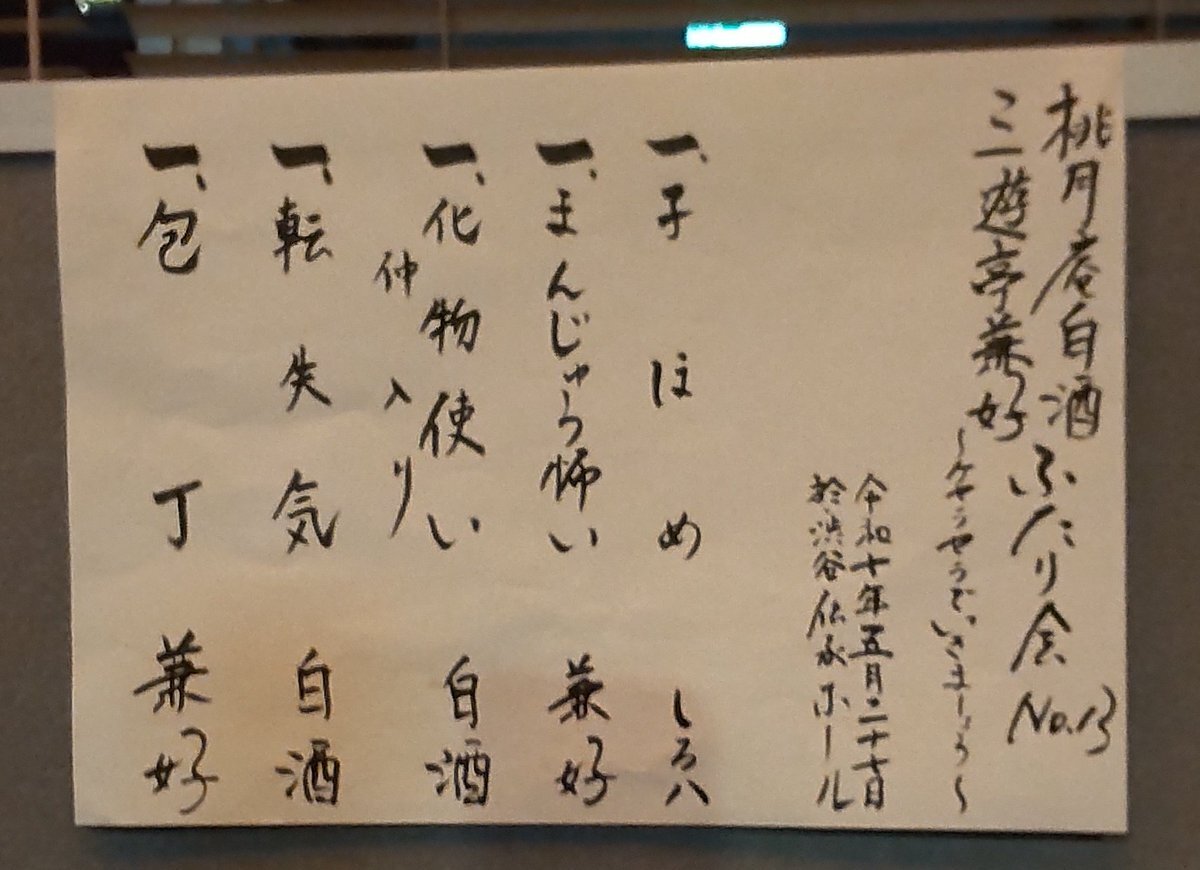 桃月庵白酒
三遊亭兼好
ふたり会 No.13
令和七年五月二十七日
於渋谷伝承ホール
一、子ほめ しろ八
一、まんじゅう怖い 兼好
一、化物使い 白酒
仲入り
一、転失気 白酒
一、包丁 兼好